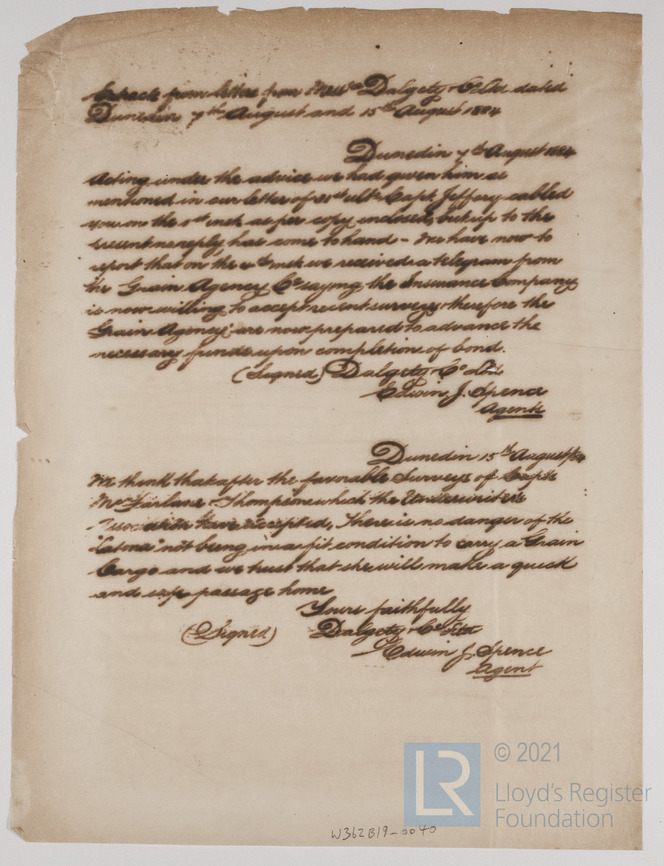 Extracts from letters from Messrs Dalgety & Co Ltd dated
Dunedin 7th August and 15th August 1884
Dunedin 7th August 1884
Acting under the advice we had given him as
mentioned in our letter of 31st ulto Capt. Jeffery cabled
you on the 1st inst. as per copy enclosed, but up to the
present no reply has come to hand - We have now to
report that on the 4th inst. we received a telegram from
the Grain Agency Co saying the Insurance Company
is now willing to accept recent surveys therefore the
Grain Agency are now prepared to advance the
necessary funds upon completion of bond.
(Signed) Dalgety & Co Ltd
Edwin J. Spence
Agent
Dunedin 15th August/84
We think that after the favorable Surveys of Capts
McFarlane & Thompson which the Underwriters
Association have accepted, there is no danger of the
"Latona" not being in a fit condition to carry a Grain
Cargo and we trust that she will make a quick
and safe passage home
Yours faithfully
(Signed) Dalgety & Co Ltd
Edwin J. Spence
Agent
LR © 2021
Lloyd's Register
Foundation
W362B19-0040